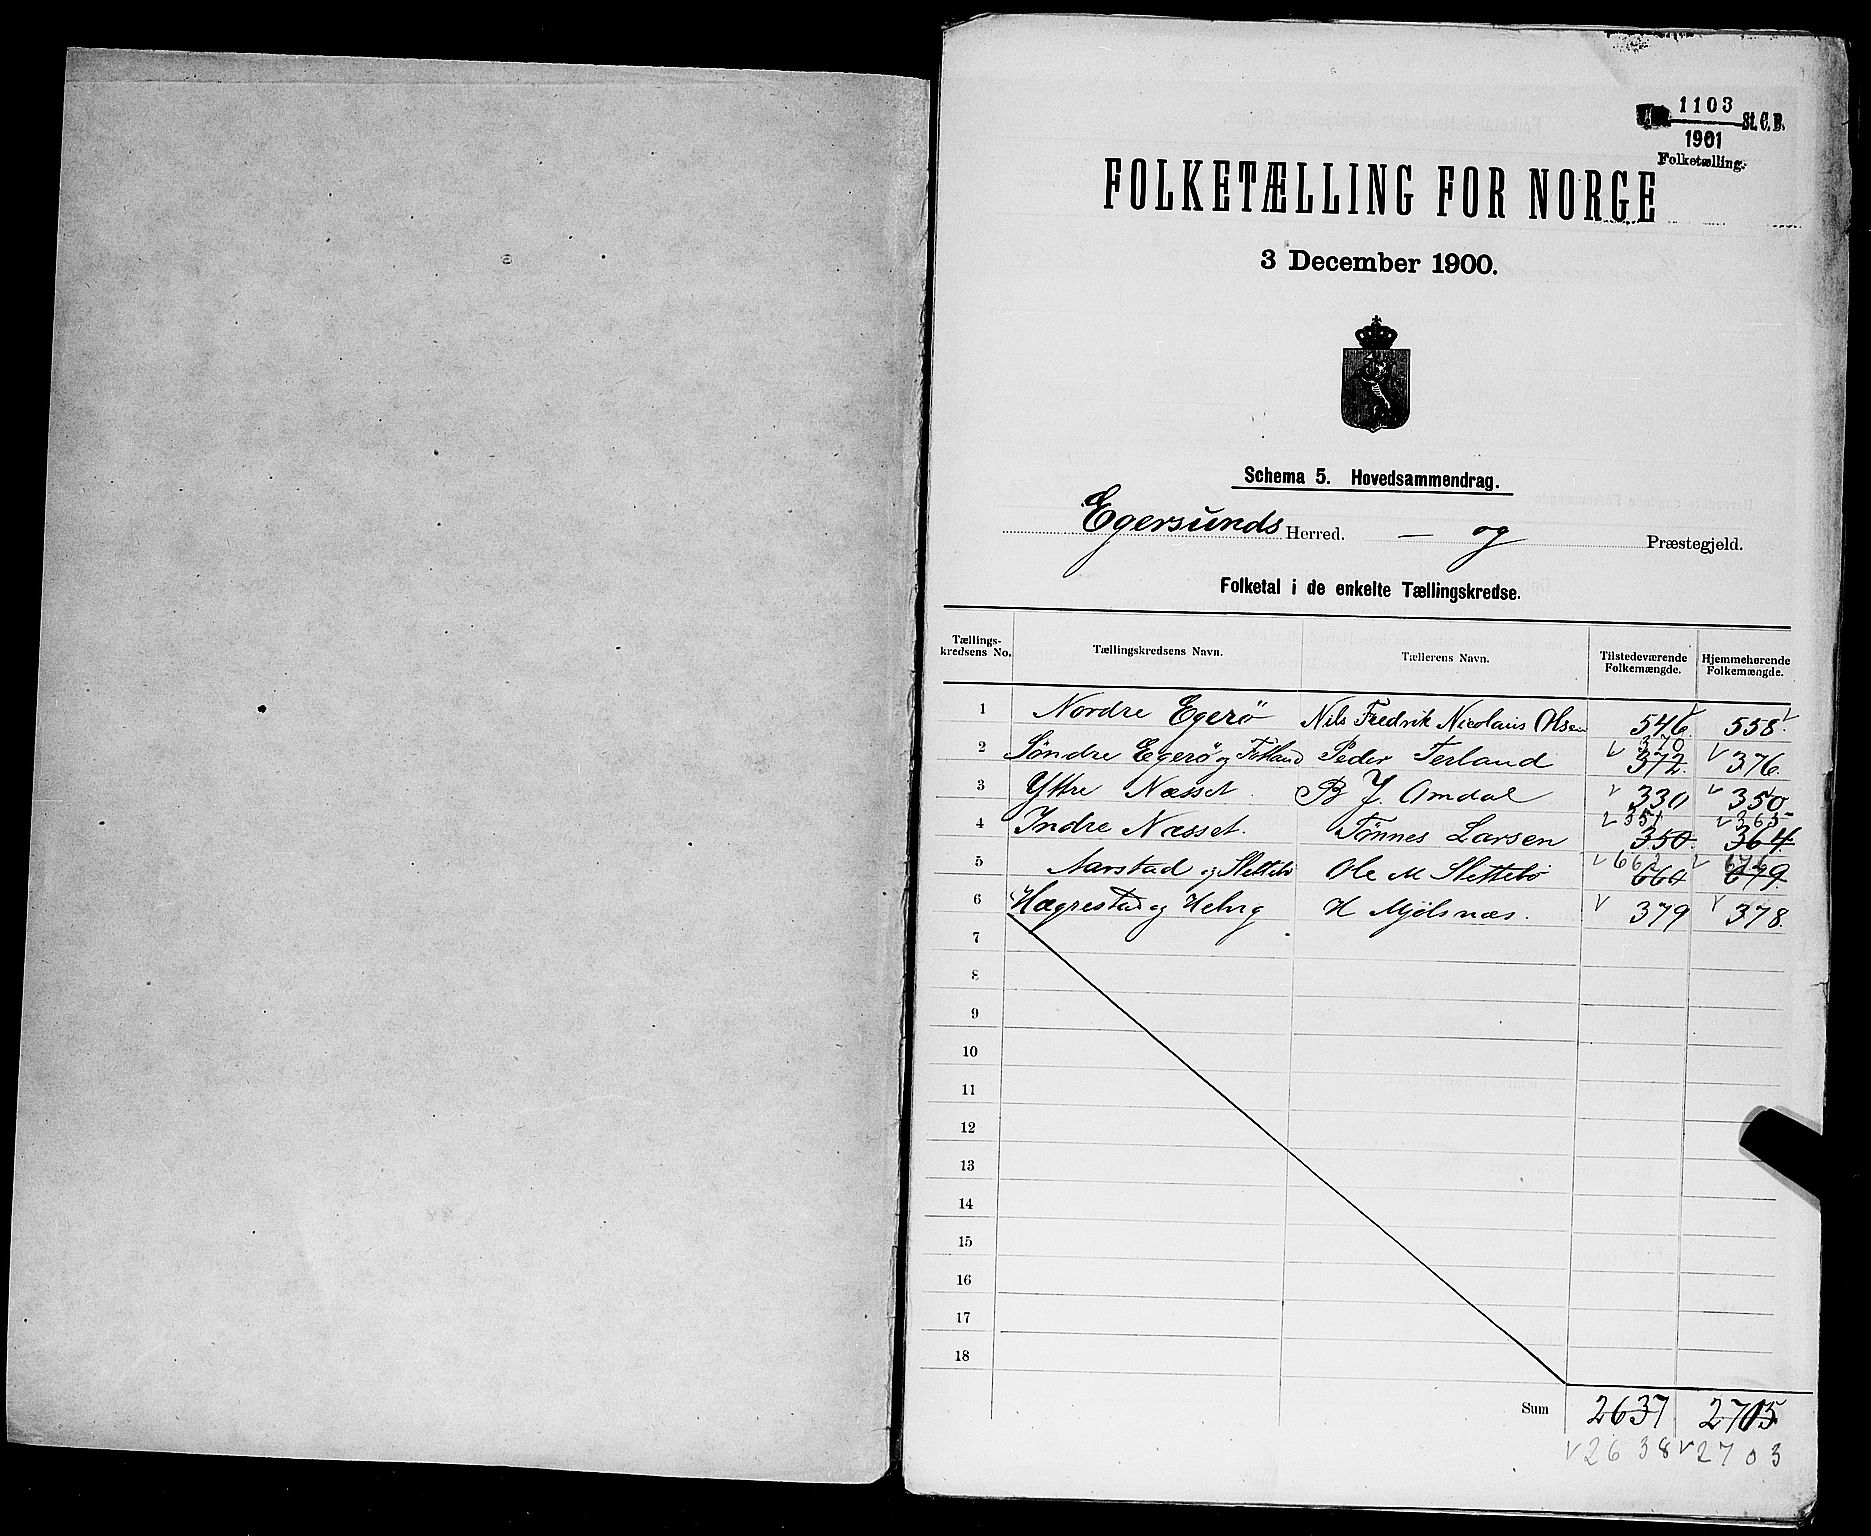 1103
1901 St. C. B.
Folketælling.
FOLKETÆLLING FOR NORGE
3 December 1900.
Schema 5. Hovedsammendrag.
Egersunds Herred. — og Præstegjeld.
Folketal i de enkelte Tællingskredse.
Tællings-kredsens No. Tællingskredsens Navn. Tællerens Navn. Tilstedeværende Folkemængde. Hjemmehørende Folkemængde.
1 Nordre Egerö Nils Fredrik Nicolaus Olsen 546 558
370
2 Søndre Egerö og Peder Terland 372 376
3 Yttre Næsset B J. Omdal 330 350
351 365
4 Indre Næsset Tønnes Larsen 350 364
662 676
5 Aarstad og Slettebö Ole M Slettebö 660 679
6 Hægrestad og H Mjølsnæs. 379 378
7
8
9
10
11
12
13
14
15
16
17
18
Sum 2637 2705
2638 2703